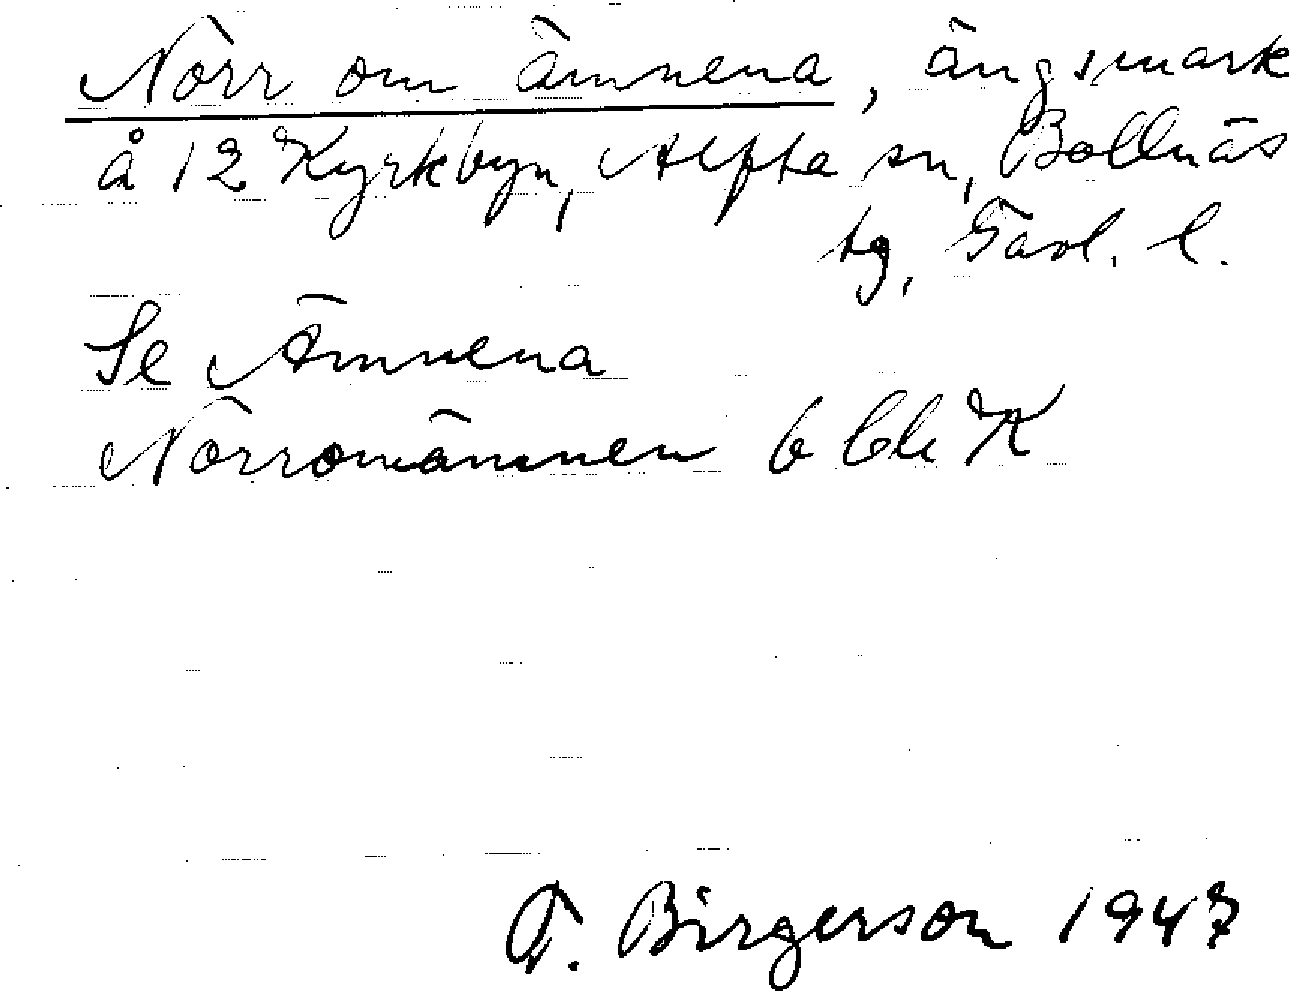 Norr om ämnena, ängsmark
å 12 Kyrkbyn, Alfta sn, Bollnäs
tg, Gävl. l.
Se Ämnena
Norromämnen
T. Birgerson 1947